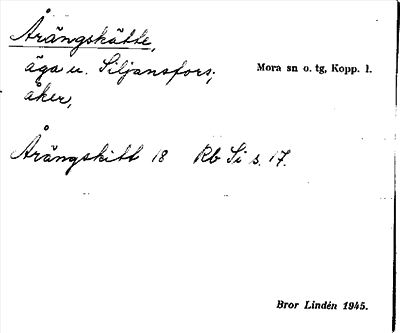 Årängskätte,
äga u. Siljansfors; Mora sn o. tg, Kopp. l.
åker,
Årängskitt 18 Rb Si s. 17.
Bror Lindén 1945.